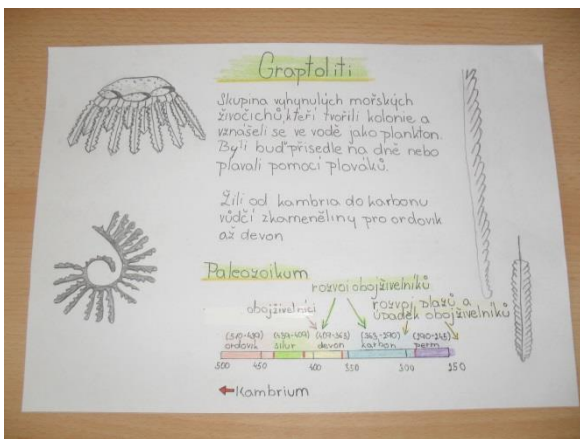 Graptoliti
Skupina vyhynulých mořských
živočichů, kteří tvořili kolonie a
vznášeli se ve vodě jako plankton.
Byli buď přisedle na dně nebo
plavali pomocí plováků.
Žili od kambria do karbonu
vůdčí zkameněliny pro ordovik
až devon
Paleozoikum
rozvoj obojživelníků
obojživelníci
rozvoj plazů a
úpadek obojživelníků
(510-439) (439-409) (409-363) (363-290) (290-245)
ordovik silur devon karbon perm
500 450 400 350 300 250
Kambrium